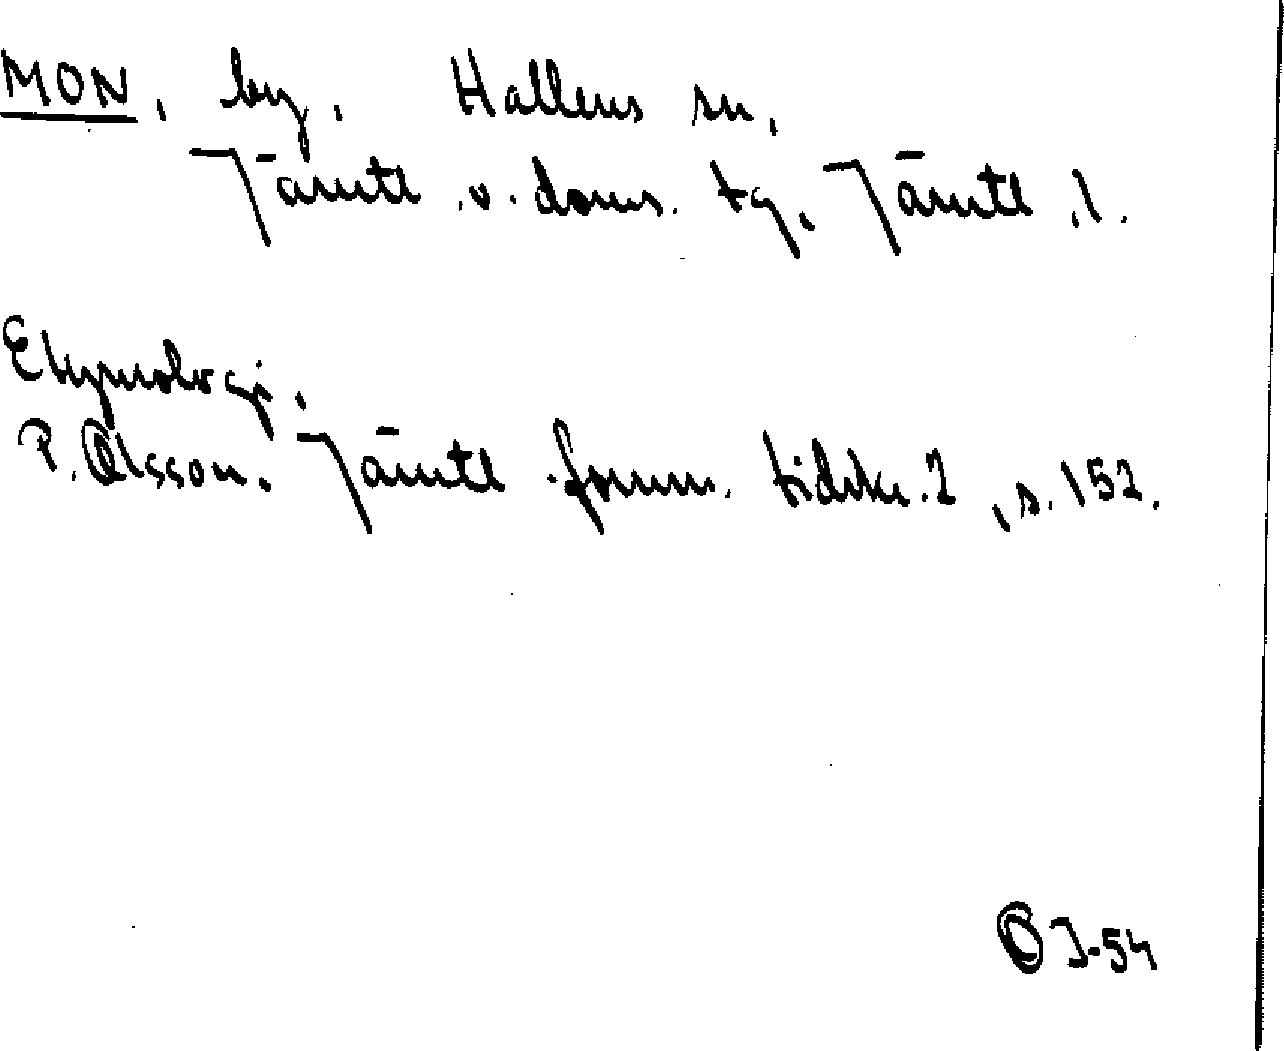 MON, by, Hallens sn,
Jämtl. v. doms. tg, Jämtl. l.
Etymologi.
P. Olsson. Jämtl. fornm. tidskr. 2, s. 152.
OJ-54